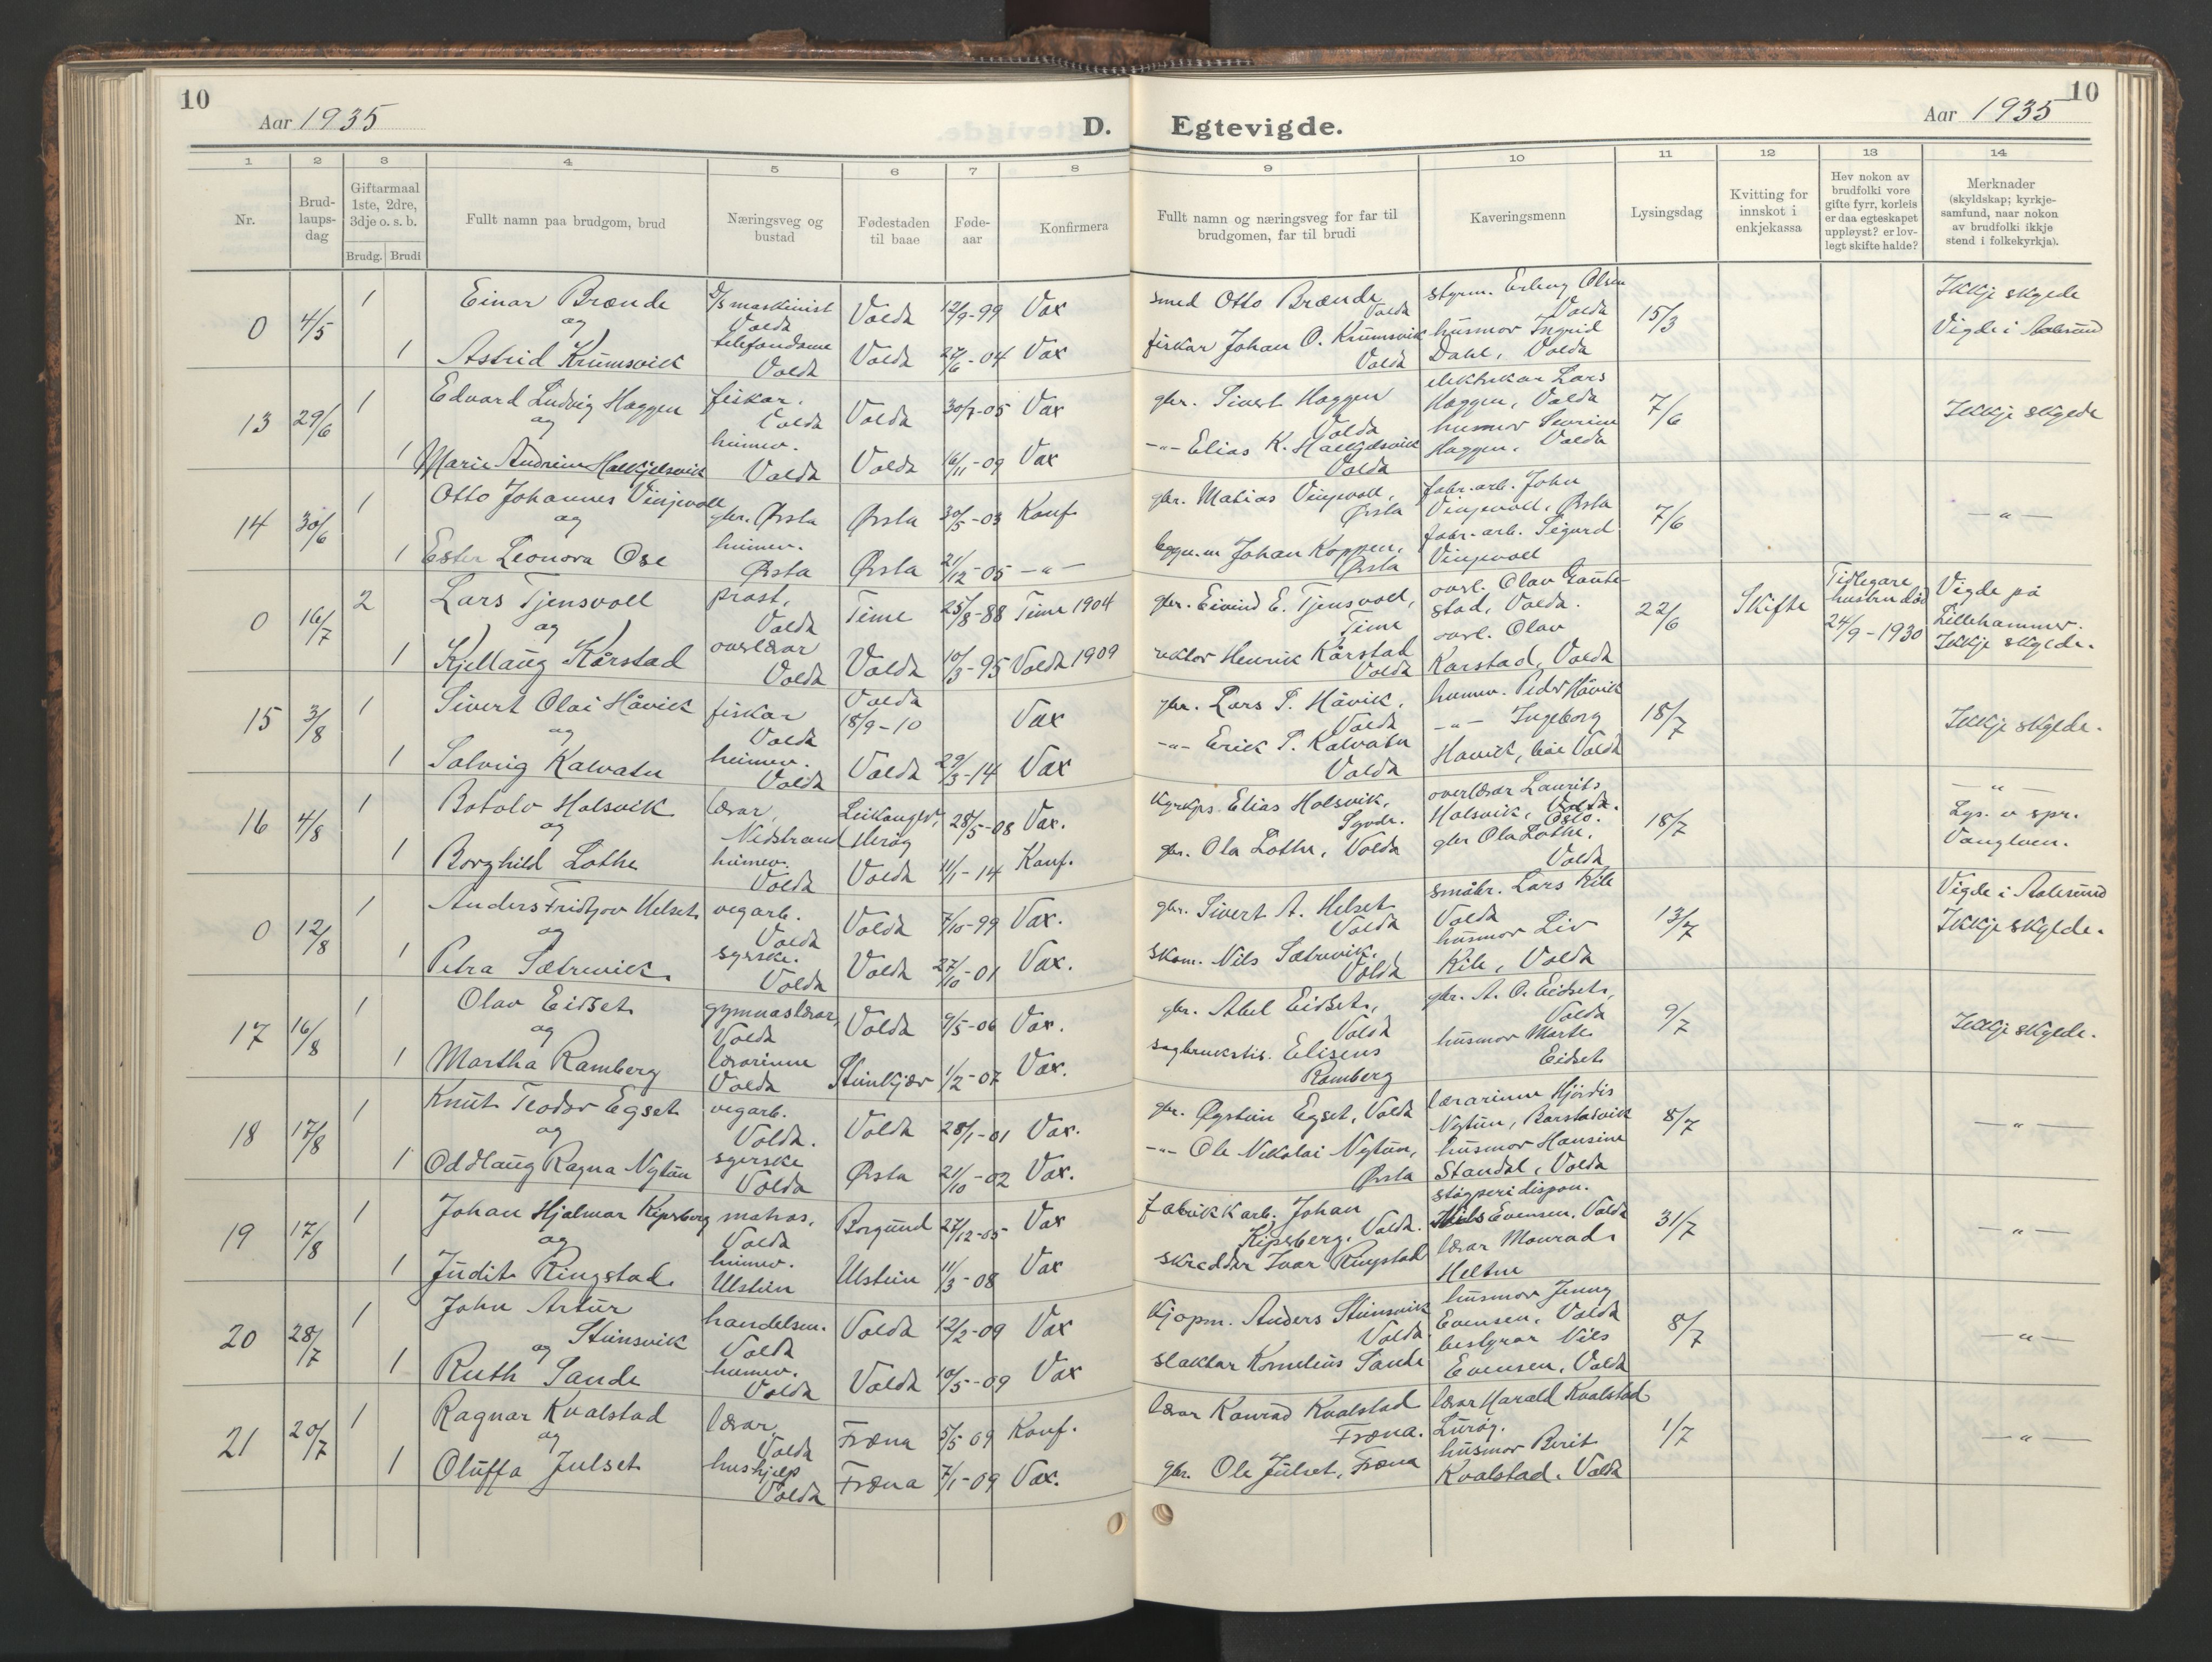 10
Aar 1935
D. Egtevigde.
Aar 1935
10
1 2 3 4 5 6 7 8 9 10 11 12 13 14
Nr.
Brud-
laups-
dag
Giftarmaal
1ste, 2dre,
3dje o. s. b.
Brudg. Brudi
Fullt namn paa brudgom, brud
Næringsveg og
bustad
Fødestaden
til baae
Føde-
aar
Konfirmera
Fullt namn og næringsveg for far til
brudgomen, far til brudi
Kaveringsmenn
Lysingsdag
Kvitting for
innskot i
enkjekassa
Hev nokon av
brudfolki vore
gifte fyrr, korleis
er daa egteskapet
uppløyst? er lov-
legt skifte halde?
Merknader
(skyldskap; kyrkje-
samfund, naar nokon
av brudfolki ikkje
stend i folkekyrkja).
0 4/5 1 Einar Brænde D/S maskinist Volda Volda 12/9-99 Vax smed Otto Brænde Volda styrm. Erling Olsen Volda 15/3 Ikkje skylde
og
1 Astrid Krumsvik telefondame Volda Volda 27/6-04 Vax fiskar Johan O. Krumsvik Volda husmor Ingrid Dahl, Volda Vigde i Aalesund
13 29/6 1 Edvard Ludvig Haggen fiskar. Volda Volda 30/7-05 Vax gbr. Sivert Haggen Volda elektrikar Lars Haggen, Volda 7/6 Ikkje skylde
og
1 Marie Andrine Halkjelsvik heimev. Volda Volda 16/11-09 Vax -"- Elias K. Halkjelsvik Volda husmor Sevrine Haggen, Volda
14 30/6 1 Otto Johannes Vinjevoll gbr. Ørsta Ørsta 30/5-03 Konf. gbr. Matias Vinjevoll, Ørsta fabr. arb. John Vinjevoll, Ørsta 7/6 -"-
og
1 Ester Leonora Ose heimev. Ørsta Ørsta 21/12-05 -"- Johan Koppen, Ørsta fabr. arb. Sigurd Vinjevoll
0 16/7 2 Lars Tjensvoll prost, Volda Time 25/8-88 Time 1904 gbr. Eivind E. Tjensvoll, Time overl. Olav Gaute-
stad, Volda. 22/6 Skifte Tidlegare hustru død 24/9-1930 Vigde på Lillehammer.
og
1 Kjellaug Kårstad overlærar Volda Volda 10/3-95 Volda 1909 rektor Henrik Kårstad Volda overl. Olav Karstad, Volda Ikkje skylde.
15 3/8 1 Sivert Olai Håvik fiskar Volda Volda 18/9-10 Vax gbr. Lars P. Håvik, Volda heimev. Peder Håvik 18/7 Ikkje skylde.
og
1 Solveig Kalvatn heimev. Volda Volda 29/3-14 Vax -"- Erik P. Kalvatn Volda -"- Ingeborg Håvik, båe Volda
16 4/8 1 Botolv Holsvik lærar, Nedstrand Leikanger, Herøy 28/5-08 Vax. kyrkjs. Elias Holsvik, overlærar Laurits Holsvik, Oslo. 18/7 -"-
og
1 Borghild Lothe heimev. Volda Volda 11/1-14 Konf. gbr. Ola Lothe, Volda gbr Ola Lothe, Volda Lys. v spr.
0 12/8 1 Anders Fridtjov Helset vegarb. Volda Volda 7/10-99 Vax. gbr. Sivert A. Helset Volda småbr. Lars Kile Volda 13/7 Vigde i Aalesund
og
1 Petra Sætrevik syerske. Volda Volda 27/10-01 Vax. skom. Nils Sætrevik, Volda husmor Liv Kile, Volda Ikkje skylde.
17 16/8 1 Olav Eidset gymnaslærar, Volda Volda 9/5-06 Vax. gbr. Abel Eidset, Volda gbr. A. O. Eidset, Volda 9/7 Ikkje skylde.
og
1 Martha Ramberg lærarinne Volda Steinkjær 1/2-07 Vax. sagbrukstis. Eliseus Ramberg husmor Marte Eidset
18 17/8 1 Knut Teodor Egset vegarb. Volda. Volda 28/1-01 Vax. gbr. Øystein Egset, Volda lærarinne Hjördis Nytun, Barstadvik 8/7 -"-
og
1 Oddlaug Ragna Nytun syerske Volda Ørsta 21/10-02 Vax. -"- Ole Nikolai Nytun, Ørsta husmor Hansine Standal, Volda
19 17/8 1 Johan Hjalmar Kipsberg matros, Volda Borgund 27/12-05 Vax fabrikkarb. Johan Kipsberg, Volda. støyperidispon. Nils Evensen, Volda 31/7 -"-
og
1 Judit Ringstad heimev. Ulstein Ulstein 11/3-08 Vax skreddar Ivar Ringstad lærar Monrad Heltne
20 28/7 1 John Artur Steinsvik handelsm. Volda Volda 12/2-09 Vax kjøpm. Anders Steinsvik Volda husmor Jenny Evensen, Volda 8/7 -"-
og
1 Ruth Sande heimev. Volda Volda 10/5-09 Vax slaktar Kornelius Sande bestyrar Nils Evensen, Volda
21 20/7 1 Ragnar Kvalstad lærar, Volda Fræna 5/5 09 Konf. lærar Konrad Kvalstad Fræna. lærar Harald Kvalstad Lurøy. 1/7 -"-
og
1 Oluffa Julset hushjelp Volda Fræna 7/1-09 Vax. gbr. Ole Julset, Fræna husmor Berit Kvalstad, Volda